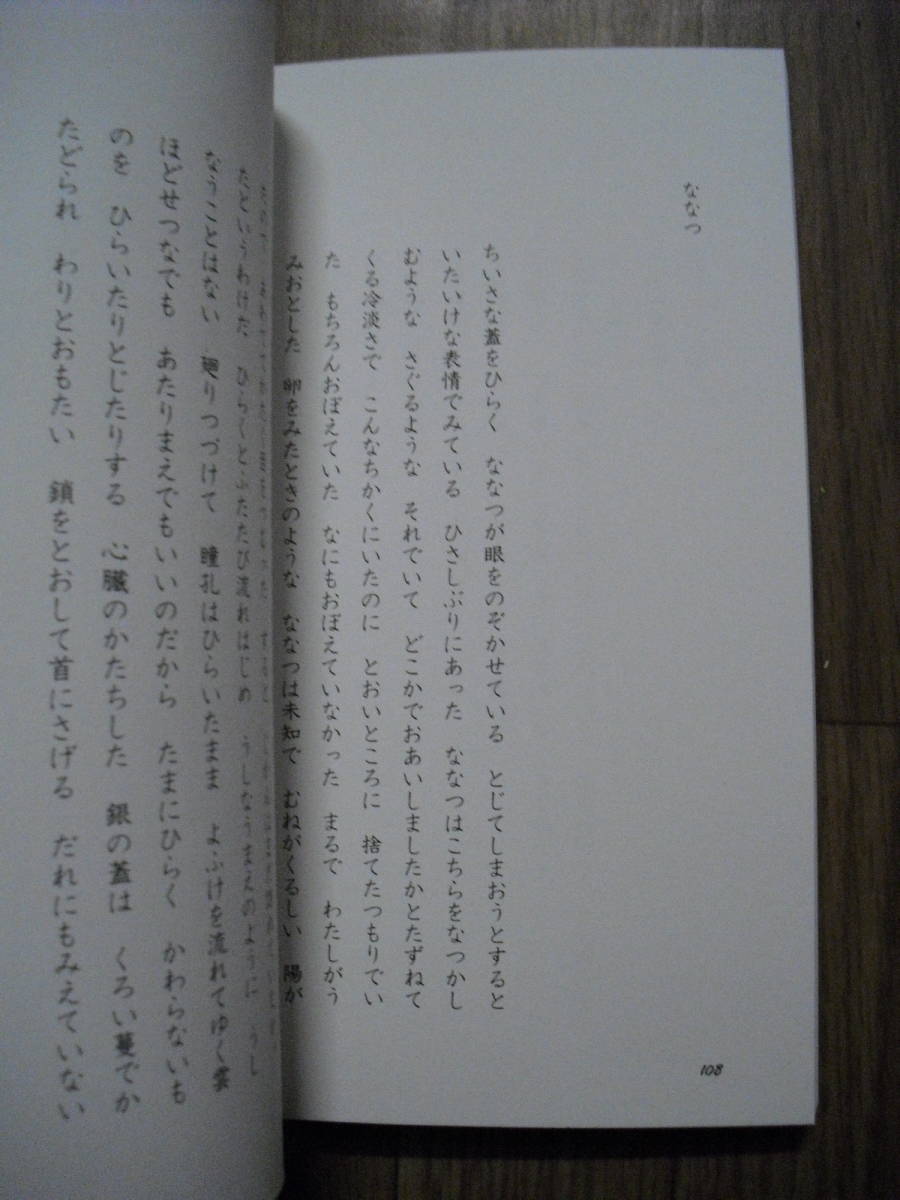 ななつ
ちいさな蓋をひらく　ななつが眼をのぞかせている　とじてしまおうとすると
いたいけな表情でみている　ひさしぶりにあった　ななつはこちらをなつかし
むような　さぐるような　それでいて　どこかでおあいしましたかとたずねて
くる冷淡さで　こんなちかくにいたのに　とおいところに　捨てたつもりでい
た　もちろんおぼえていた　なにもおぼえていなかった　まるで　わたしがう
みおとした　卵をみたときのような　ななつは未知で　むねがくるしい　陽が
108
たというわけだ　ひらくとふたたび流れはじめ　うしなうまえのように　うし
なうことはない　廻りつづけて　瞳孔はひらいたまま　よふけを流れてゆく雲
ほどせつなでも　あたりまえでもいいのだから　たまにひらく　かわらないも
のを　ひらいたりとじたりする　心臓のかたちした　銀の蓋は　くろい蔓でか
たどられ　わりとおもたい　鎖をとおして首にさげる　だれにもみえていない